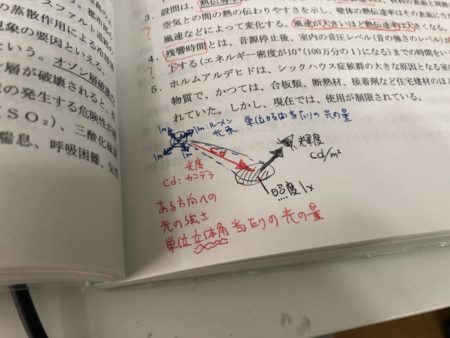 の蒸散作用による
現象の要因といえる。
いう。オゾン層
層が破壊されると、
の発生する危険性が
SO₂)、三酸化硫
喘息、呼吸困難、気
3. 設問は、熱伝導
空気との間の熱の伝わりやすさを示し、壁体の熱伝達率はその表面に当
風速などによって変化する。風速が大きいほど熱伝達率は大
4. 残響時間とは、音源停止後、室内の音圧レベル(音の強さのレベル)
下する(エネルギー密度が10⁻⁶(100万分の1)になる)までの時間をい
5. ホルムアルデヒドは、シックハウス症候群の大きな原因となる室
物質で、かつては、合板類、断熱材、接着剤など住宅建材のほ
れていた。しかし、現在では、使用が制限されている。
lm lm lm:ルーメン 単位時間当たりの光の量
光束
lm lm
cd
輝度
cd/m²
光度
cd:カンデラ
照度 lx
ある方向への
光の強さ
単位立体角当たりの光の量